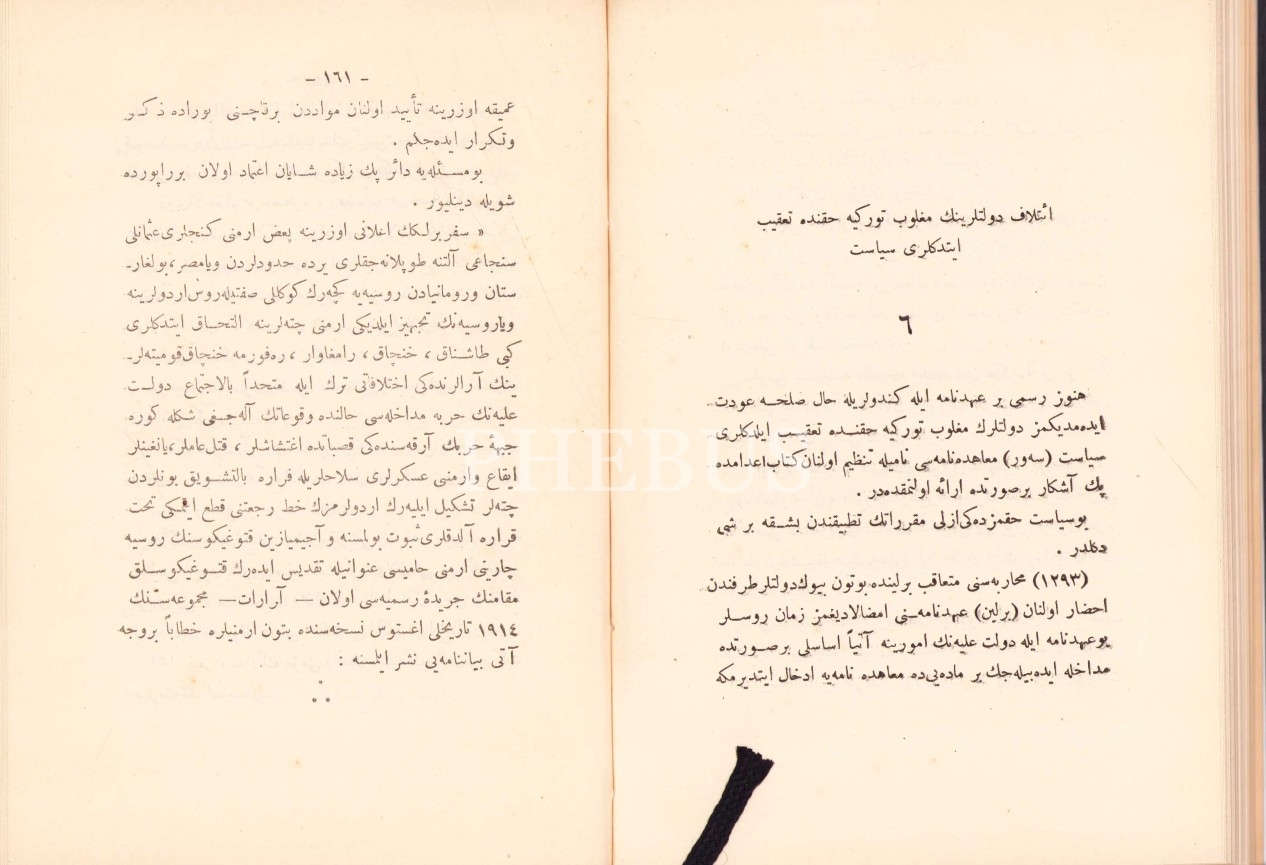 ائتلاف دولتلرينك مغلوب توركيه حقنده تعقيب
ايتدكلرى سياست
٦
هنوز رسمى بر عهدنامه ايله كندولريله حال صلحه عودت
ايده‌مديكمز دولتلرك مغلوب توركيه حقنده تعقيب ايلدكلرى
سياست (سه‌ور) معاهده‌نامه‌سى ناميله تنظيم اولنان كتاب اعدامده
پك آشكار برصورتده ارائه اولنمقده‌در .
بوسياست حقمزده‌كى ازلى مقرراتك تطبيقندن بشقه بر شى
دكلدر .
(١٢٩٣) محاربه‌سنى متعاقب برلينده بوتون بيوك دولتلر طرفندن
احضار اولنان (برلين) عهدنامه‌سنى امضالاديغمز زمان روسلر
بوعهدنامه ايله دولت عليه‌نك امورينه آتياً اساسلى برصورتده
مداخله ايده‌بيله‌جك بر ماده‌يى‌ده معاهده نامه‌يه ادخال ايتديرمكه
– ١٦١ –
عميقه اوزرينه تأييد اولنان مواددن برقاچنى بوراده ذكر
وتكرار ايده‌جكم .
بومسئله‌يه دائر پك زياده شايان اعتماد اولان برراپورده
شويله دينليور .
« سفربرلكك اعلانى اوزرينه بعض ارمنى كنجلرى عثمانلى
سنجاغى آلتنه طوپلانه‌جقلرى يرده حدودلردن ويا مصر، بولغار-
ستان ورومانيادن روسيه‌يه كچه‌رك كوكللى صفتيله روس اردولرينه
وياروسيه‌نك تجهيز ايلديكى ارمنى چته‌لرينه التحاق ايتدكلرى
كبى طاشناق ، خنچاق ، رامغاوار ، ره‌فورمه خنچاق قوميته‌لر-
ينك آرالرنده‌كى اختلافاتى ترك ايله متحداً بالاجتماع دولت
عليه‌نك حربه مداخله‌سى حالنده وقوعاتك آله‌جغى شكله كوره
جبههٔ حربك آرقه‌سنده‌كى قصباتده اغتشاشلر ، قتل عاملر، يانغينلر
ايقاع وارمنى عسكرلرى سلاحلريله فراره بالتشويق بونلردن
چته‌لر تشكيل ايليه‌رك اردولرمزك خط رجعتنى قطع ايتمكى تحت
قراره آلدقلرى ثبوت بولمسنه و آجيميازين قتوغيكوسنك روسيه
چارينى ارمنى حاميسى عنوانيله تقديس ايده‌رك قتوغيكوسلق
مقامنك جريدهٔ رسميه‌سى اولان — آرارات — مجموعه‌سنك
١٩١٤ تاريخلى اغستوس نسخه‌سنده بتون ارمنيلره خطاباً بروجه
آتى بياننامه‌يى نشر ايلمسنه :
PHEBUS